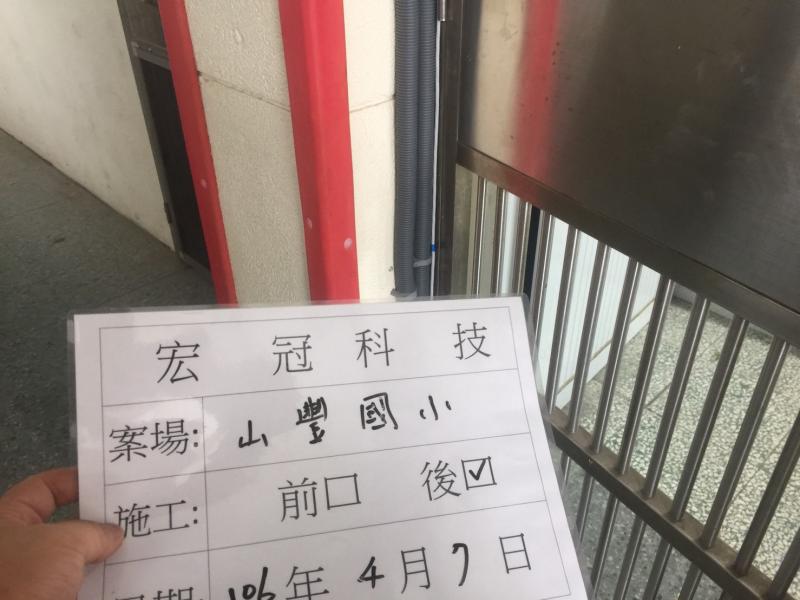 宏冠科技
案場: 山豐國小
施工: 前☐ 後☑
日期: 106年4月7日